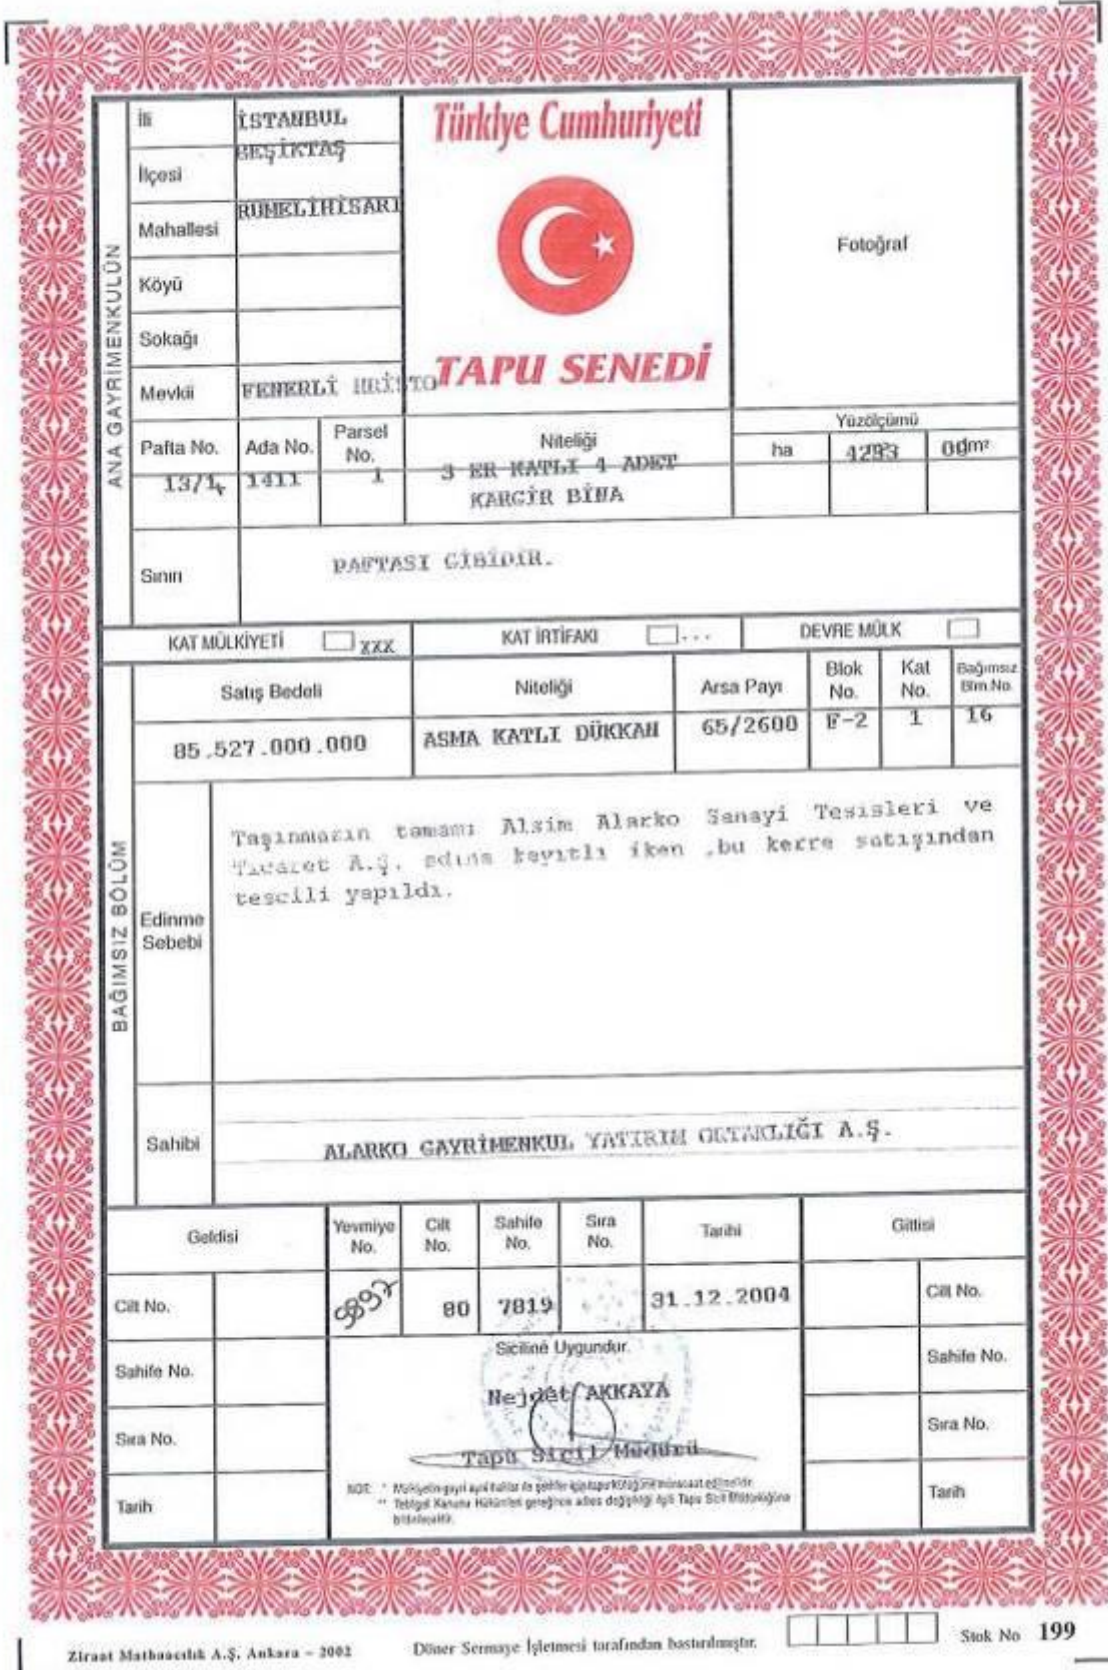 İli İSTANBUL
Türkiye Cumhuriyeti
BEŞİKTAŞ
İlçesi
Mahallesi RUMELİHİSARI
Fotoğraf
Köyü
Sokağı
TAPU SENEDİ
Mevkii FENERLİ HRİSTO
ANA GAYRİMENKULÜN
Pafta No. Ada No. Parsel No. Niteliği Yüzölçümü
ha 4293 00 m²
13/1 1411 1 3 ER KATLI 4 ADET
KARGİR BİNA
Sınırı PAFTASI GİBİDİR.
KAT MÜLKİYETİ XXX KAT İRTİFAKI ... DEVRE MÜLK
Satış Bedeli Niteliği Arsa Payı Blok No. Kat No. Bağımsız Blm.No.
85.527.000.000 ASMA KATLI DÜKKAN 65/2600 F-2 1 16
BAĞIMSIZ BÖLÜM
Edinme Sebebi
Taşınmazın tamamı Alsim Alarko Sanayi Tesisleri ve
Ticaret A.Ş. adına kayıtlı iken ,bu kerre satışından
tescili yapıldı.
Sahibi ALARKO GAYRİMENKUL YATIRIM ORTAKLIĞI A.Ş.
Geldisi Yevmiye No. Cilt No. Sahife No. Sıra No. Tarihi Gittisi
Cilt No. 5897 80 7819 31.12.2004 Cilt No.
Siciline Uygundur.
Sahife No. Sahife No.
Nejdet AKKAYA
Sıra No. Sıra No.
Tapu Sicil Müdürü
NOT: * Mülkiyetin gayri ayni haklar ile şerhler için tapu kütüğüne müracaat edilmelidir.
** Tebligat Kanunu Hükümleri gereğince adres değişikliği ilgili Tapu Sicil Müdürlüğüne
bildirilecektir.
Tarih Tarih
Ziraat Matbaacılık A.Ş. Ankara – 2002 Döner Sermaye İşletmesi tarafından bastırılmıştır. Stok No 199